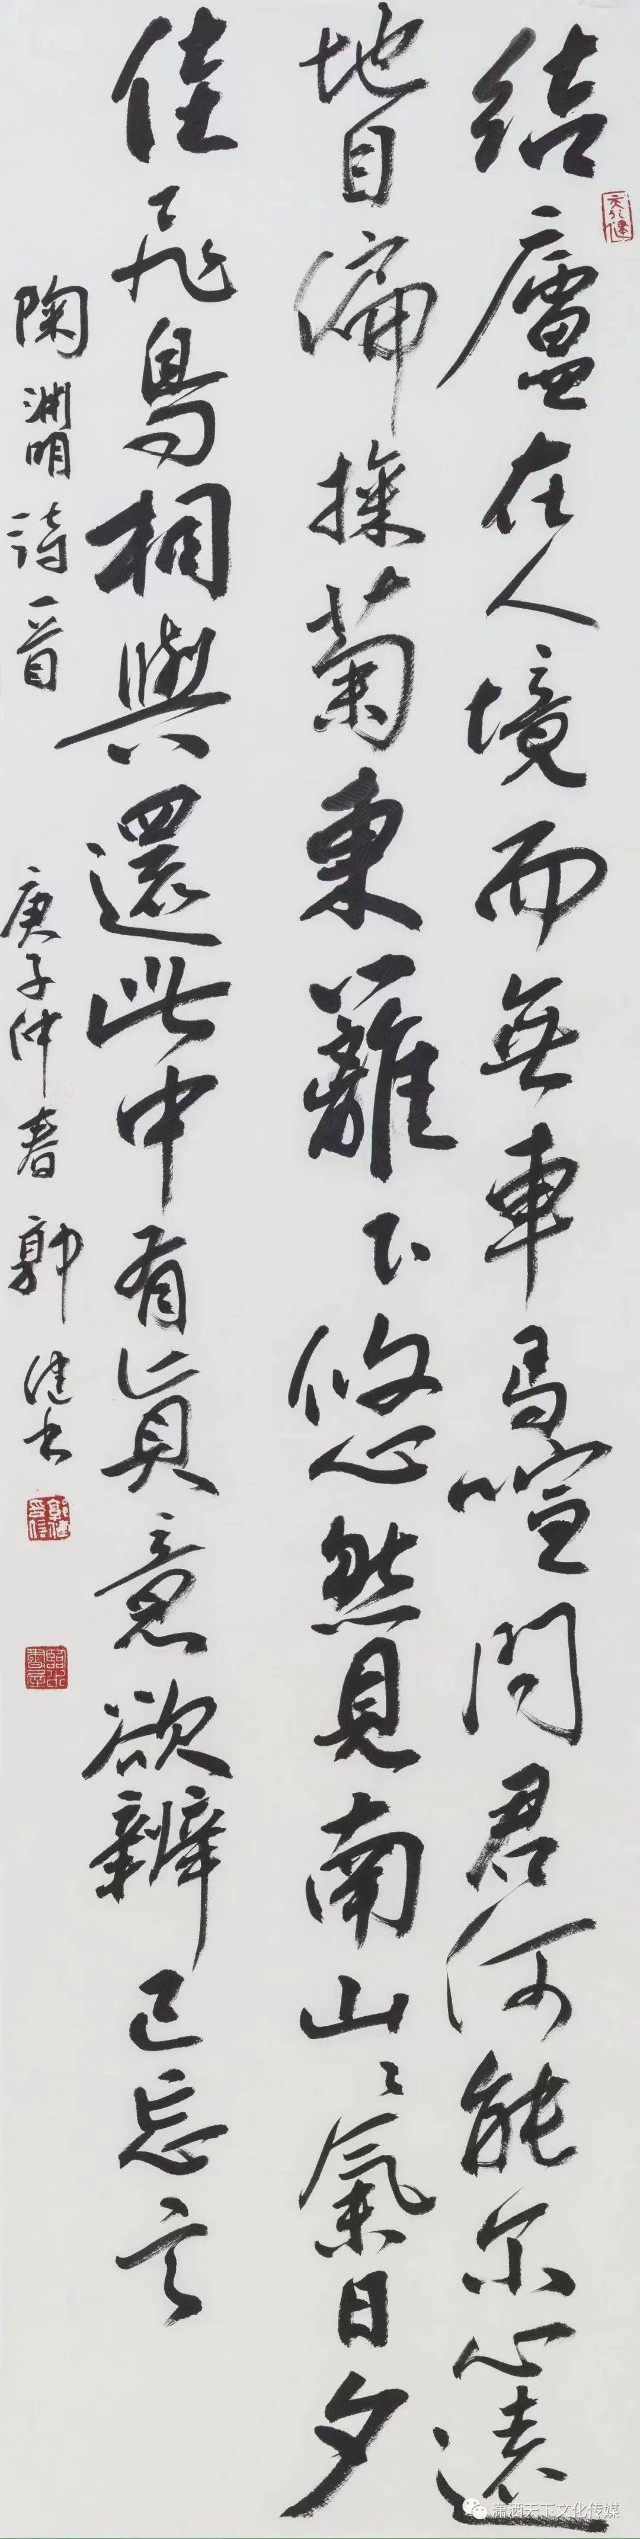 結廬在人境而無車馬喧問君何能尔心遠
地自偏採菊東籬下悠然見南山〻氣日夕
佳飛鳥相與還此中有真意欲辨已忘言
陶淵明詩一首 庚子仲春 郭健书
潇洒天下文化传媒